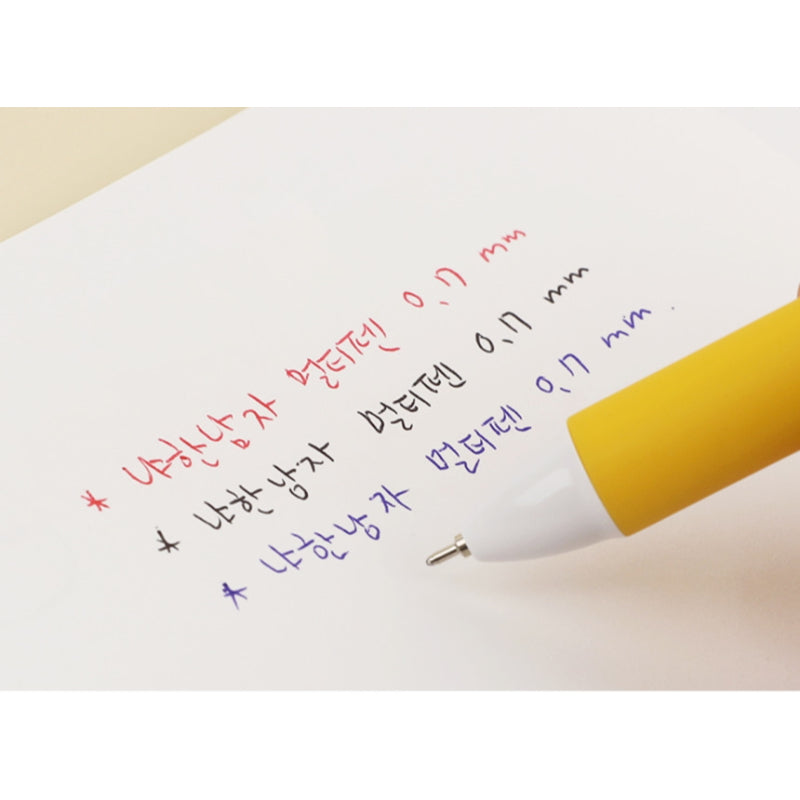 * 냐한남자 멀티펜 0.7 mm
* 냐한남자 멀티펜 0.7 mm
* 냐한남자 멀티펜 0.7 mm